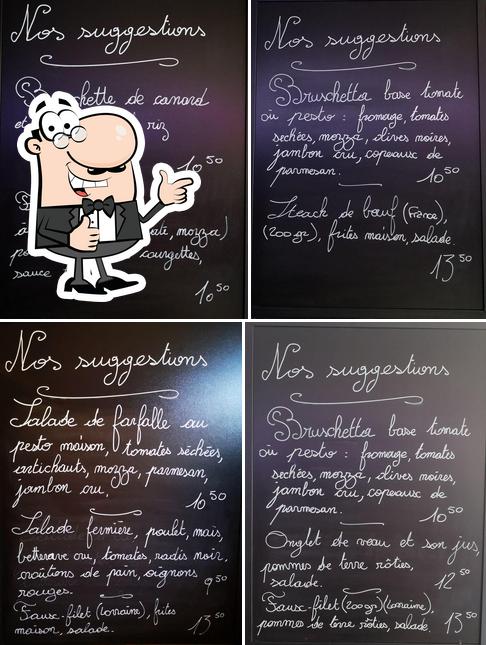 Nos suggestions
chette de canard
et riz
10⁵⁰
ate, mozza)
courgettes,
sauce
10⁵⁰
Nos suggestions
Bruschetta base tomate
ou pesto : fromage, tomates
sechées, mozza, olives noires,
jambon cru, copeaux de
parmesan. 10⁵⁰
Steack de bœuf (France),
(200 gr), frites maison, salade.
13⁵⁰
Nos suggestions
Salade de farfalle au
pesto maison, tomates séchées,
artichauts, mozza, parmesan,
jambon cru. 10⁵⁰
Salade fermière, poulet, maïs,
betterave cru, tomates, radis noir,
croûtons de pain, oignons
rouges. 9⁵⁰
Faux-filet (Lorraine), frites
maison, salade. 13⁵⁰
Nos suggestions
Bruschetta base tomate
ou pesto : fromage, tomates
sechées, mozza, olives noires,
jambon cru, copeaux de
parmesan. 10⁵⁰
Onglet de veau et son jus,
pommes de terre rôties,
salade. 12⁵⁰
Faux-filet (200 gr) (Lorraine),
pommes de terre rôties, salade. 13⁵⁰